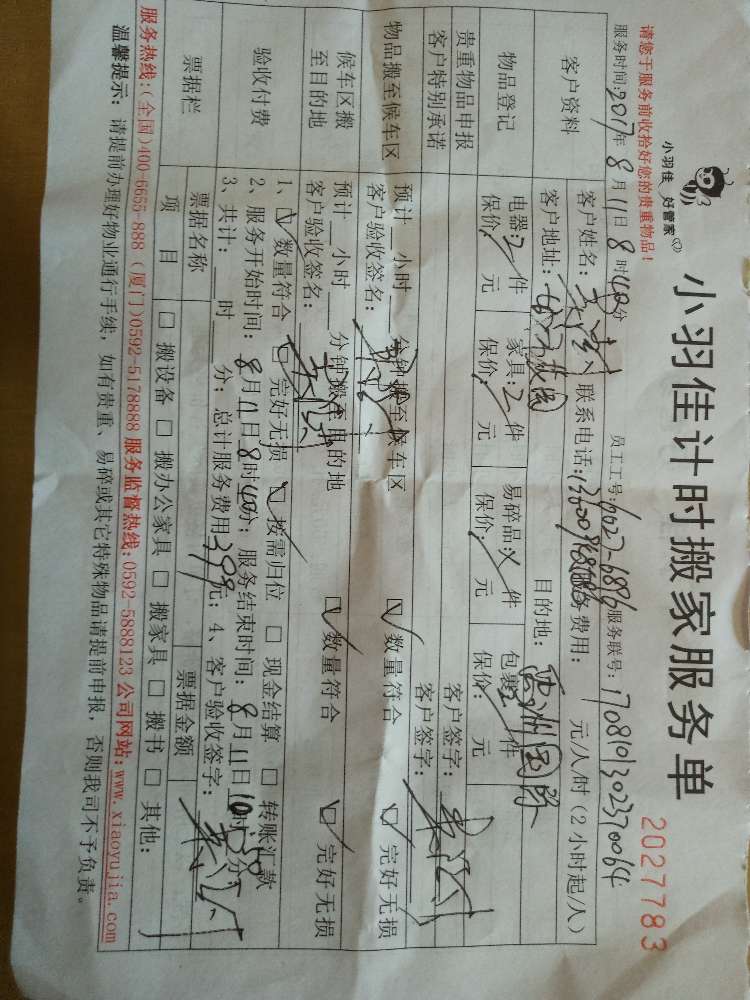 小羽佳 好管家
小羽佳计时搬家服务单
2027783
请您于服务前收拾好您的贵重物品！
员工工号：
服务联号：1708101302370064
服务时间：2017年8月11日8时40分
客户资料
客户姓名：
联系电话：
服务费用： 元/人/时(2小时起/人)
客户地址：
目的地：
物品登记
电器：2件 家具：2件 易碎品： 件 包裹： 件
保价： 元 保价： 元 保价： 元 保价： 元
贵重物品申报
客户签字：
客户特别承诺
客户签字：
物品搬至候车区
预计 小时 分钟搬至候车区 数量符合 完好无损
客户验收签名：
候车区搬至目的地
预计 小时 分钟搬至目的地 数量符合 完好无损
客户验收签名：
验收付费
1、 数量符合 完好无损 按需归位 □ 现金结算 □ 转账汇款
2、服务开始时间：8月11日8时40分；服务结束时间：8月11日10时 分；
3、共计： 时 分；总计服务费用 元；4、客户验收签字：
票据栏
票据名称
票据金额
项 目
□ 搬设备 □ 搬办公家具 □ 搬家具 □ 搬书 □ 其他：
服务热线：(全国)400-6655-888 (厦门)0592-5178888 服务监督热线：0592-5888123 公司网站：www.xiaoyujia.com
温馨提示：请提前办理好物业通行手续，如有贵重、易碎或其它特殊物品请提前申报，否则我司不予负责。